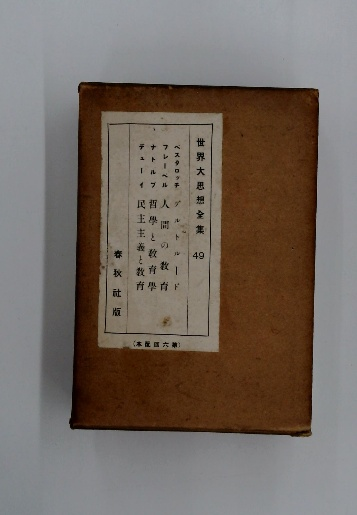 世界大思想全集 49
ペスタロッチ ゲルトルード
フレーベル 人間の教育
ナトルプ 哲學と教育學
デューイ 民主主義と教育
春秋社版
(第六回配本)